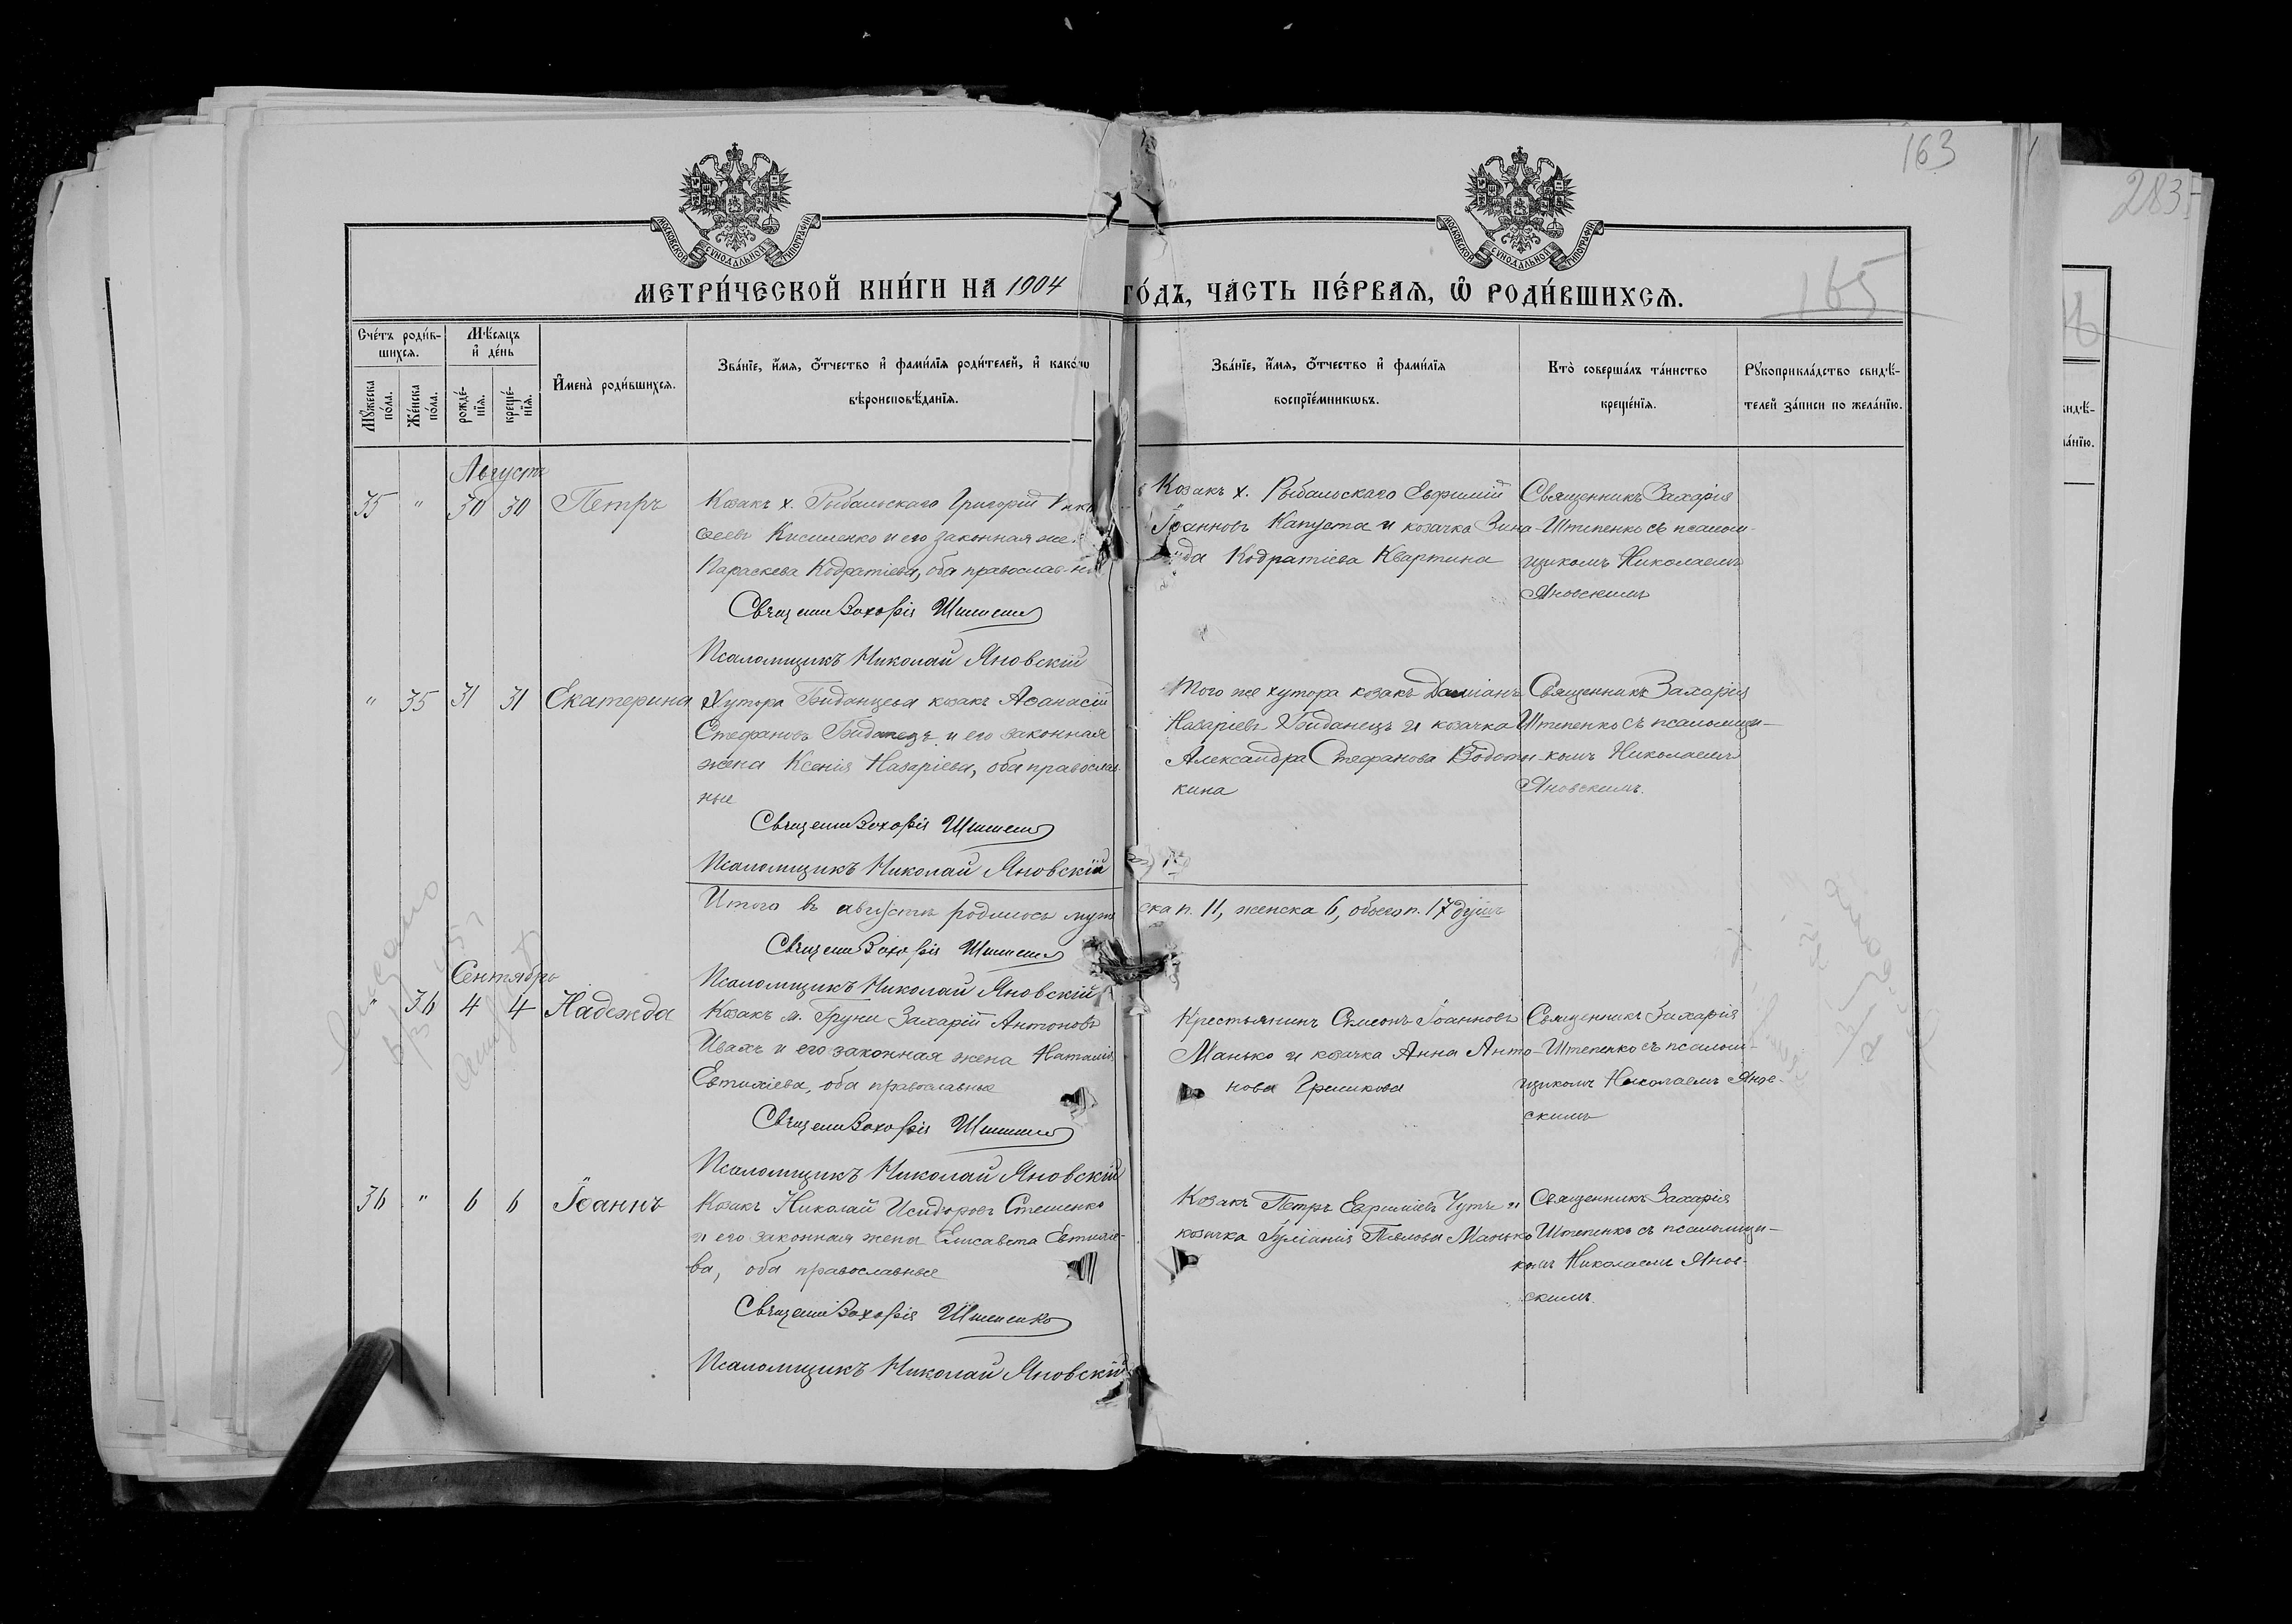 163
283
165
МОСКОВСКОЙ СѴНОДАЛЬНОЙ ТИПОГРАФІИ
МОСКОВСКОЙ СѴНОДАЛЬНОЙ ТИПОГРАФІИ
МЕТРИ́ЧЕСКОЙ КНИ́ГИ НА 1904 ГО́ДЪ, ЧА́СТЬ ПЕ́РВАЯ, Ѽ РОДИ́ВШИХСЯ.
Сче́тъ роди́в-
шихся.
Мѣ́сяцъ
и҆ де́нь
Мꙋ́жеска по́ла.
Же́нска по́ла.
рожде́-
нїя.
креще́-
нїя.
И҆мена̀ роди́вшихся.
Зва́нїе, и҆́мя, ѻ҆́тчество и҆ фами́лїя роди́телей, и҆ како́гѡ
вѣроисповѣ́данїя.
Зва́нїе, и҆́мя, ѻ҆́тчество и҆ фами́лїя
воспрїе́мникѡвъ.
Кто̀ соверша́лъ та́инство
креще́нїя.
Рꙋкоприкла́дство свидѣ́-
телей за́писи по жела́нїю.
Августъ
35 " 30 30 Петръ
Козакъ х. Рыбальскаго Григорій
Кисиленко и его законная же-
Параскева Кодратіева, оба православ-ны
Священ Захарія Штепенко
Псаломщикъ Николай Яновскій
Козакъ х. Рыбальскаго Евфимій
Іоанновъ Капуста и козачка Зина-
ида Кодратіева Квартина
Священникъ Захарія
Штепенко съ псалом-
щикомъ Николаемъ
Яновскимъ
" 35 31 31 Екатерина
Хутора Биданцева козакъ Аѳанасій
Стефановъ Биданецъ и его законная
жена Ксенія Назаріева, оба православ-
ные
Священ Захарія Штепенко
Псаломщикъ Николай Яновскій
Того же хутора козакъ Даміанъ
Назаріевъ Биданецъ и козачка
Александра Стефанова
кина
Священникъ Захарія
Штепенко съ псаломщи-
комъ Николаемъ
Яновскимъ.
Итого въ августѣ родилось муже ска п. 11, женска 6, обоего п. 17 душъ
Священ Захарія Штепенко
Псаломщикъ Николай Яновскій
Сентябрь
" 36 4 4 Надежда
Козакъ м. Груни Захарій Антоновъ
Ивахъ и его законная жена Наталія
Евтихіева, оба православные
Священ Захарія Штепенко
Псаломщикъ Николай Яновскій
Крестьянинъ Симеонъ Іоанновъ
Манько и козачка Анна Анто-
нова
Священникъ Захарія
Штепенко съ псалом-
щикомъ Николаемъ Янов-
скимъ
36 " 6 6 Іоаннъ
Козакъ Николай Исидоровъ Стешенко
и его законная жена Елисавета Евтихіе-
ва, оба православные
Священ Захарія Штепенко
Псаломщикъ Николай Яновскій
Козакъ Петръ Евфиміевъ Чутъ и
козачка Іуліанія Павлова Манько
Священникъ Захарія
Штепенко съ псаломщи-
комъ Николаемъ Янов-
скимъ